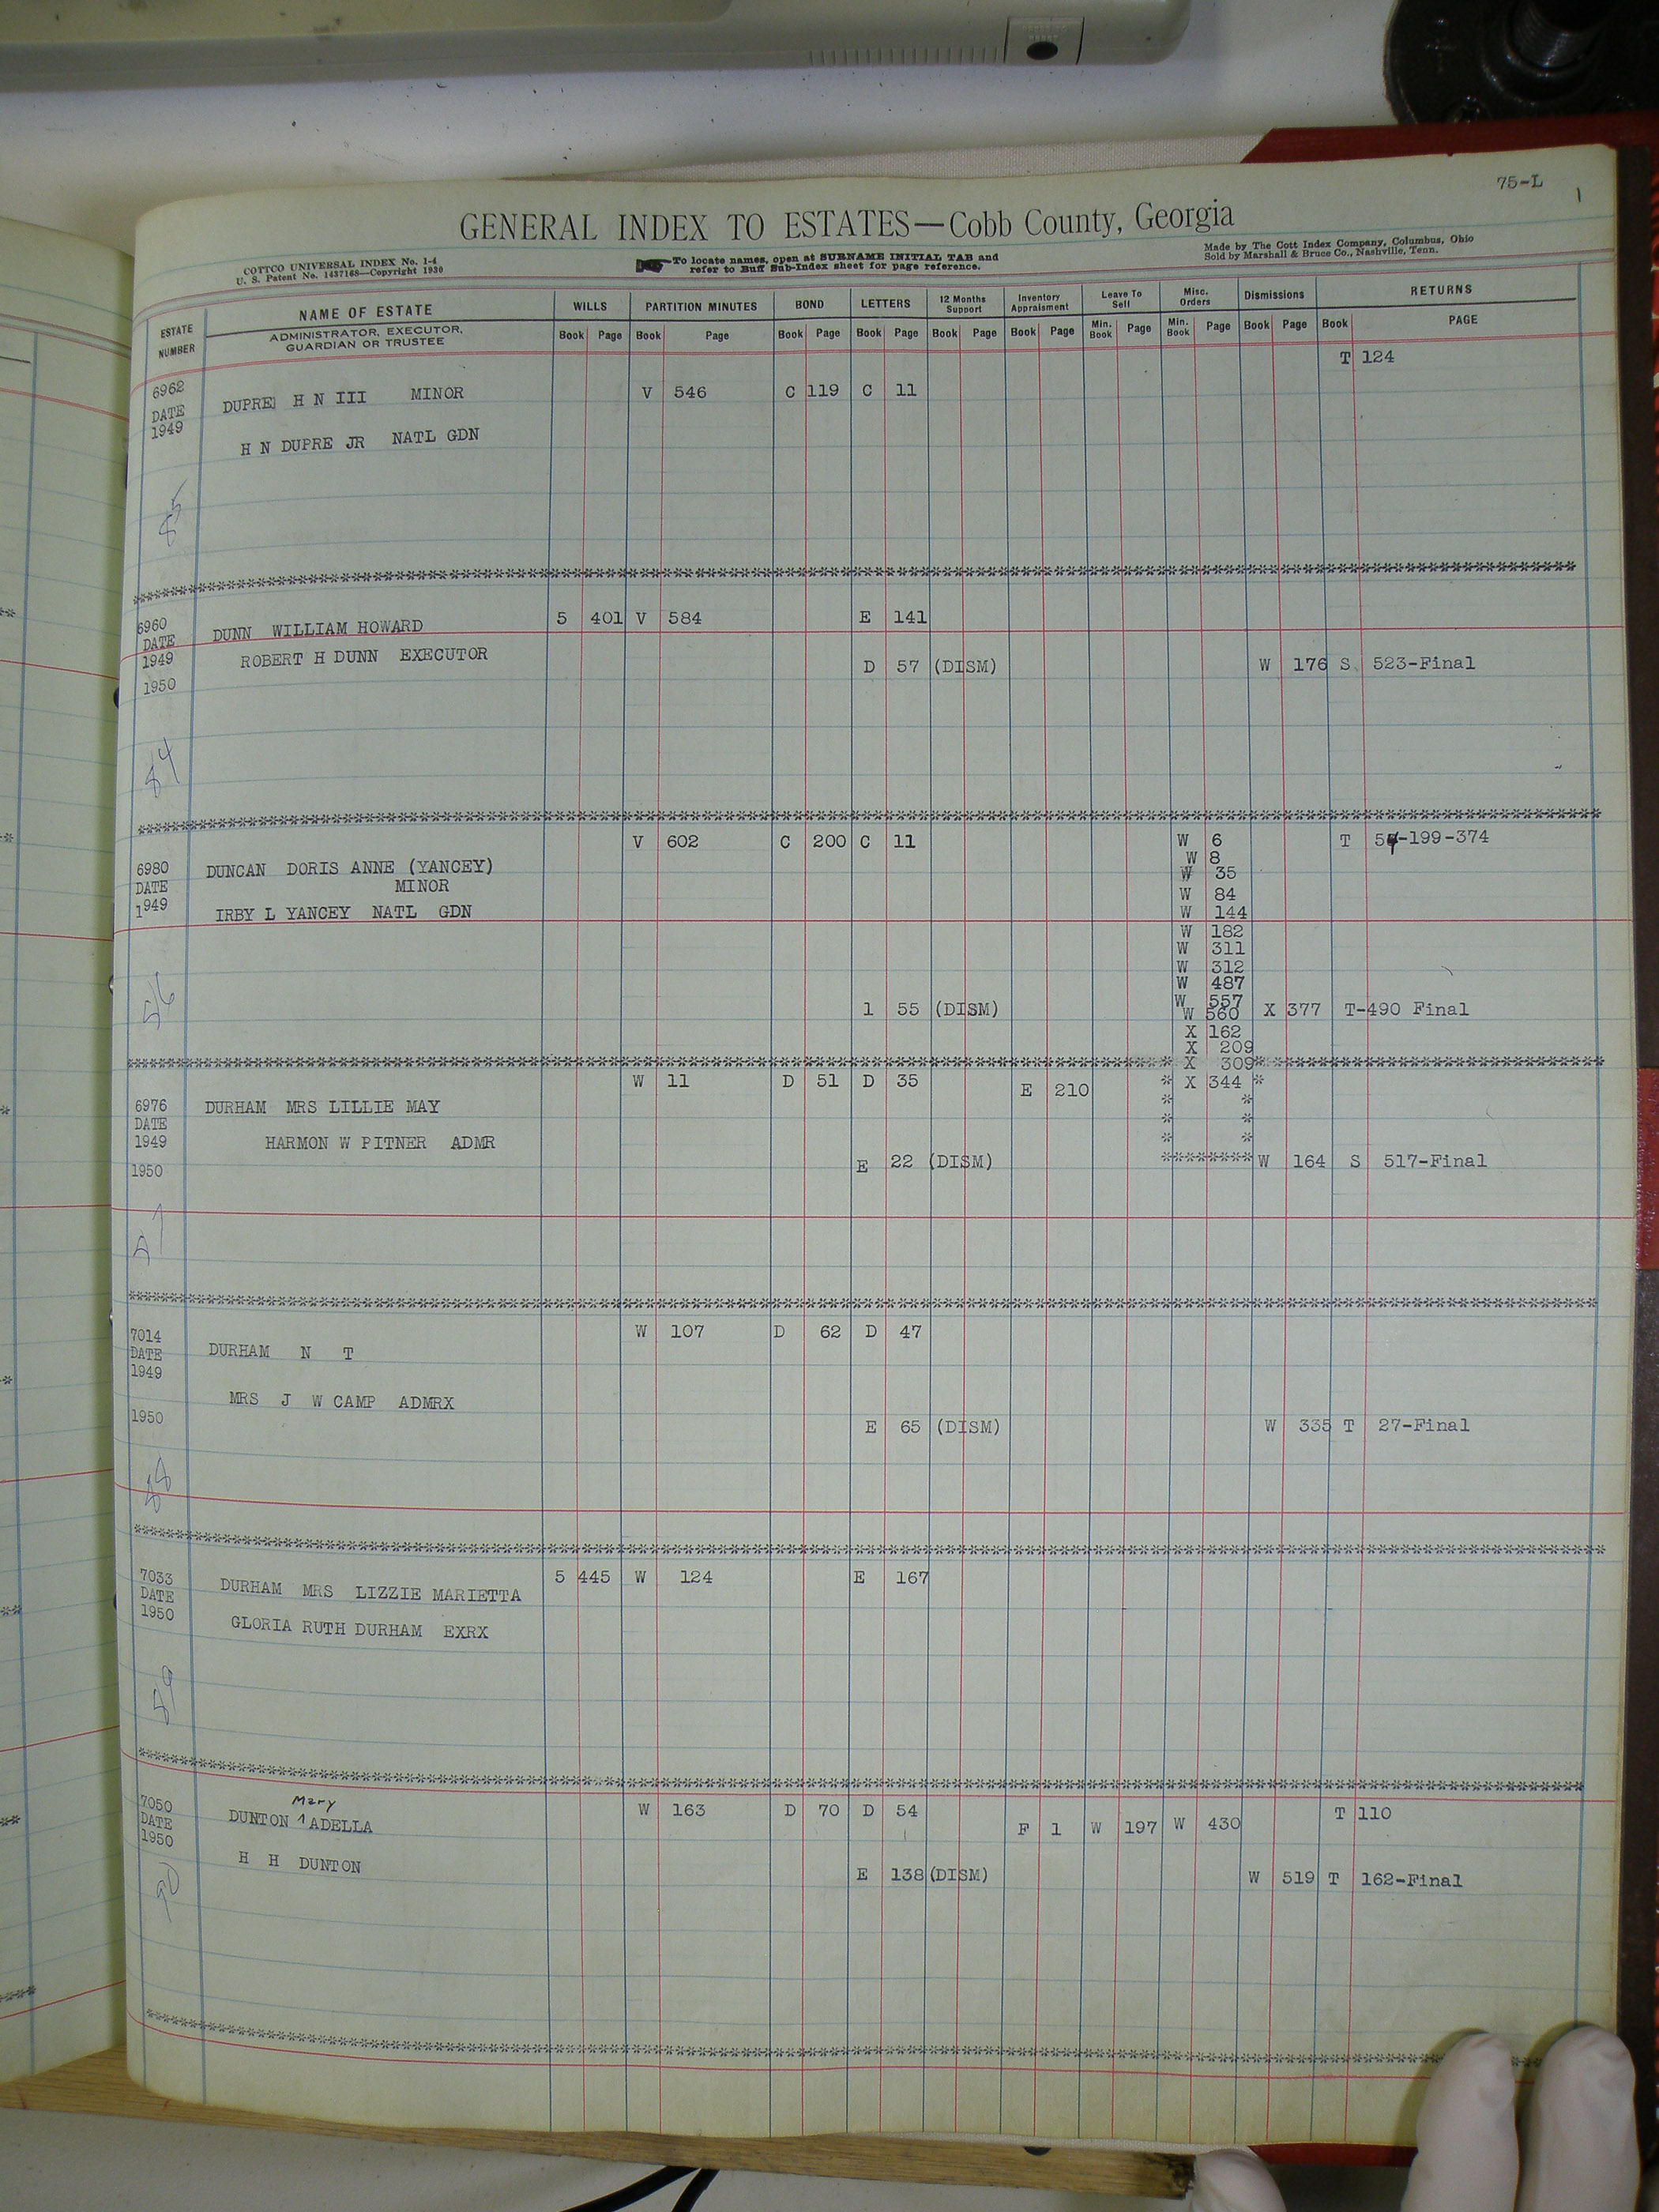 75-L
GENERAL INDEX TO ESTATES—Cobb County, Georgia
COTTCO UNIVERSAL INDEX No. 1-4
U. S. Patent No. 1437168—Copyright 1930
To locate names, open at SURNAME INITIAL TAB and
refer to Buff Sub-Index sheet for page reference.
Made by The Cott Index Company, Columbus, Ohio
Sold by Marshall & Bruce Co., Nashville, Tenn.
ESTATE NUMBER
NAME OF ESTATE
ADMINISTRATOR, EXECUTOR,
GUARDIAN OR TRUSTEE
WILLS PARTITION MINUTES BOND LETTERS 12 Months Support Inventory Appraisment Leave To Sell Misc. Orders Dismissions RETURNS
Book Page Book Page Book Page Book Page Book Page Book Page Min. Book Page Min. Book Page Book Page Book PAGE
T 124
6962 DUPRE H N III MINOR V 546 C 119 C 11
DATE
1949 H N DUPRE JR NATL GDN
85
6960 DUNN WILLIAM HOWARD 5 401 V 584 E 141
DATE
1949 ROBERT H DUNN EXECUTOR D 57 (DISM) W 176 S 523-Final
1950
84
V 602 C 200 C 11 W 6 T 54-199-374
W 8
6980 DUNCAN DORIS ANNE (YANCEY) W 35
DATE MINOR W 84
1949 IRBY L YANCEY NATL GDN W 144
W 182
W 311
W 312
W 487
W 557
1 55 (DISM) W 560 X 377 T-490 Final
X 162
X 209
X 309
W 11 D 51 D 35 E 210 X 344
6976 DURHAM MRS LILLIE MAY
DATE
1949 HARMON W PITNER ADMR
1950 E 22 (DISM) W 164 S 517-Final
7014 W 107 D 62 D 47
DATE DURHAM N T
1949
MRS J W CAMP ADMRX
1950 E 65 (DISM) W 335 T 27-Final
88
7033 DURHAM MRS LIZZIE MARIETTA 5 445 W 124 E 167
DATE
1950 GLORIA RUTH DURHAM EXRX
89
Mary
7050 DUNTON ^ ADELLA W 163 D 70 D 54 F 1 W 197 W 430 T 110
DATE
1950
H H DUNTON E 138 (DISM) W 519 T 162-Final
90